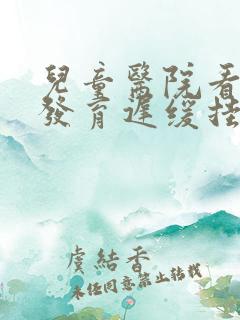 兒童醫院看
發育遲緩挂
虞結香
未经同意禁止转载